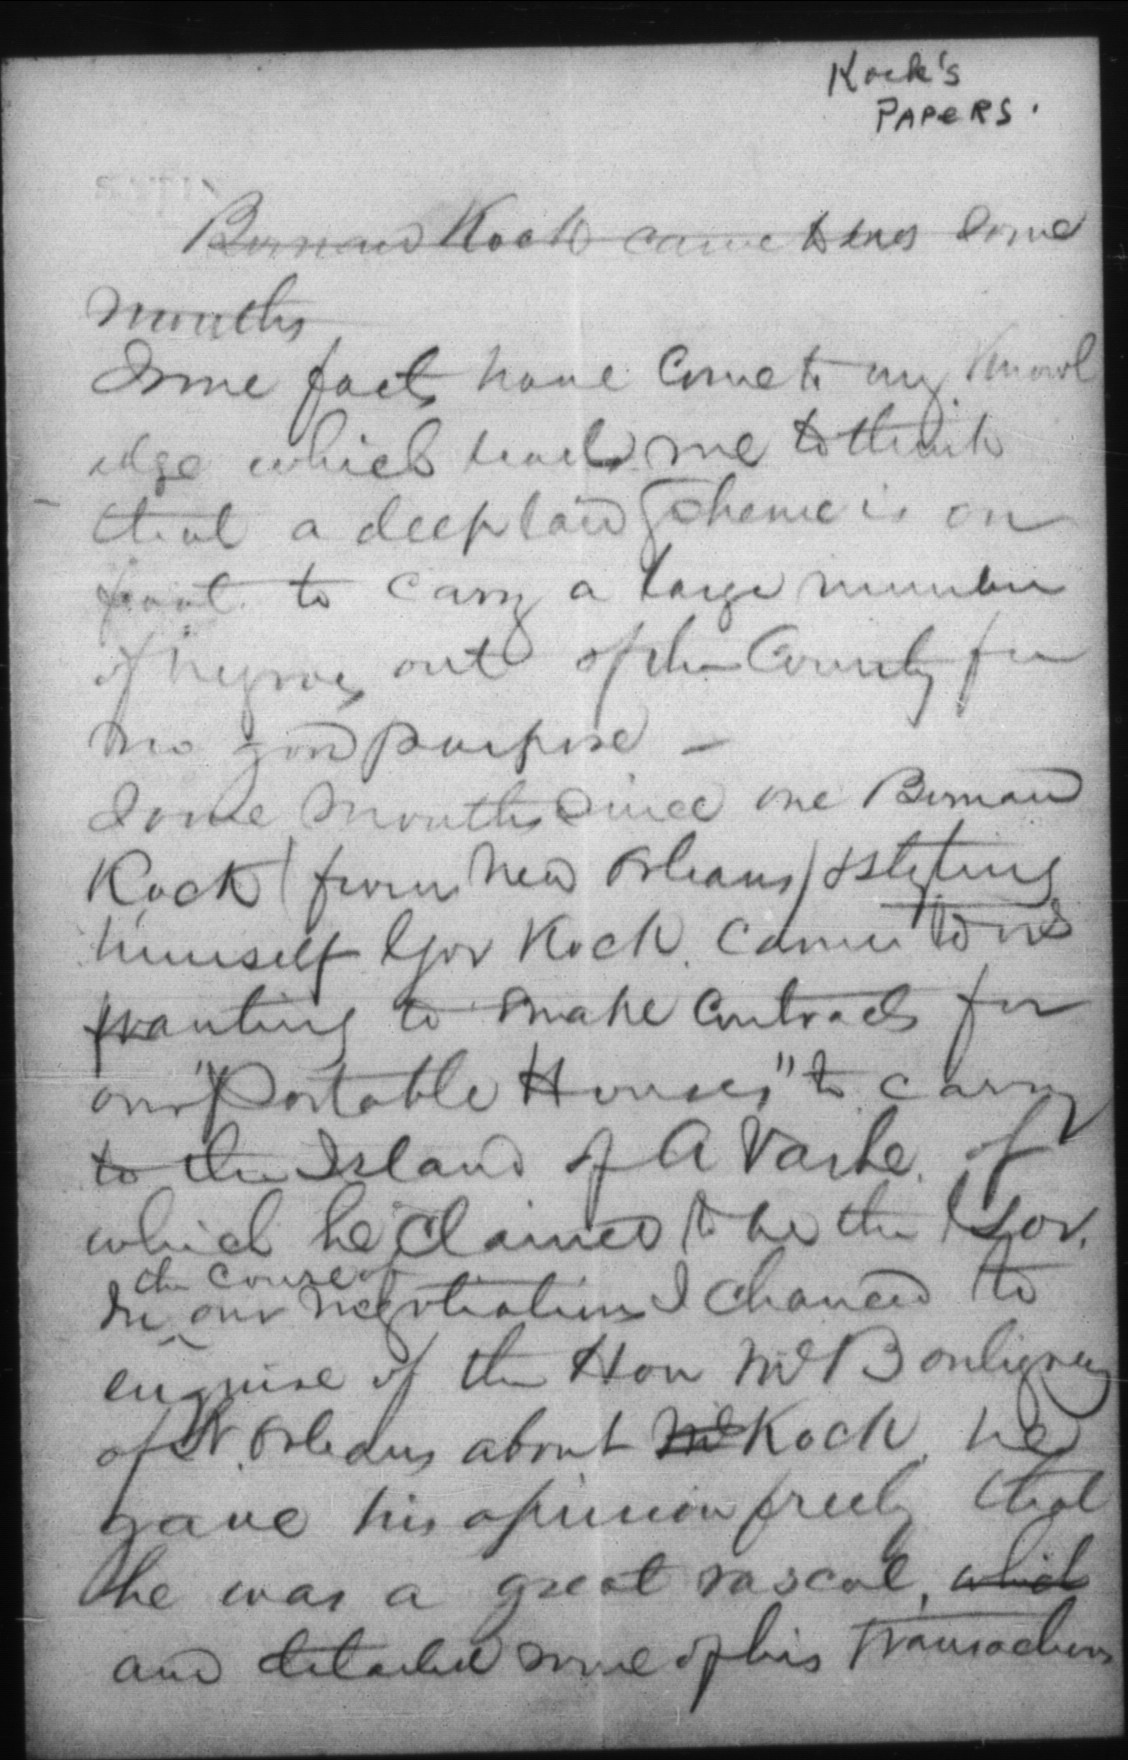 Kock's
PAPERS.
Bernard Kock came to us some
months
Some facts have come to my knowl
edge which leads me to think
that a deep laid scheme is on
foot to carry a large number
of negroes out of the County for
no good purpose —
Some months since one Bernard
Kock (from New Orleans) & styling
himself Gov Kock. came to us
wanting to make contracts for
our "Portable Houses" to carry
to the Island of A Vache. of
which he claimed to be the Gov.
In the course of our negotiations I chanced to
enquire of the Hon Mr Bouligney
of N. Orleans about Mr Kock, he
gave his opinion freely that
he was a great rascal, which
and detailed some of his transactions